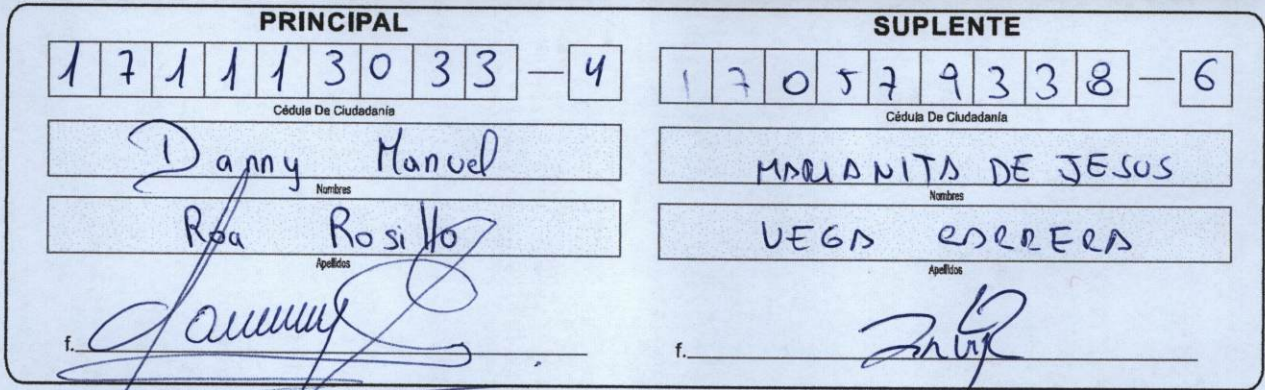 PRINCIPAL
171113033-4
Cédula De Ciudadanía
Danny Manuel
Nombres
Roa Rosillo
Apellidos
f.
SUPLENTE
170579338-6
Cédula De Ciudadanía
MARIANITA DE JESUS
Nombres
VEGA CARRERA
Apellidos
f.